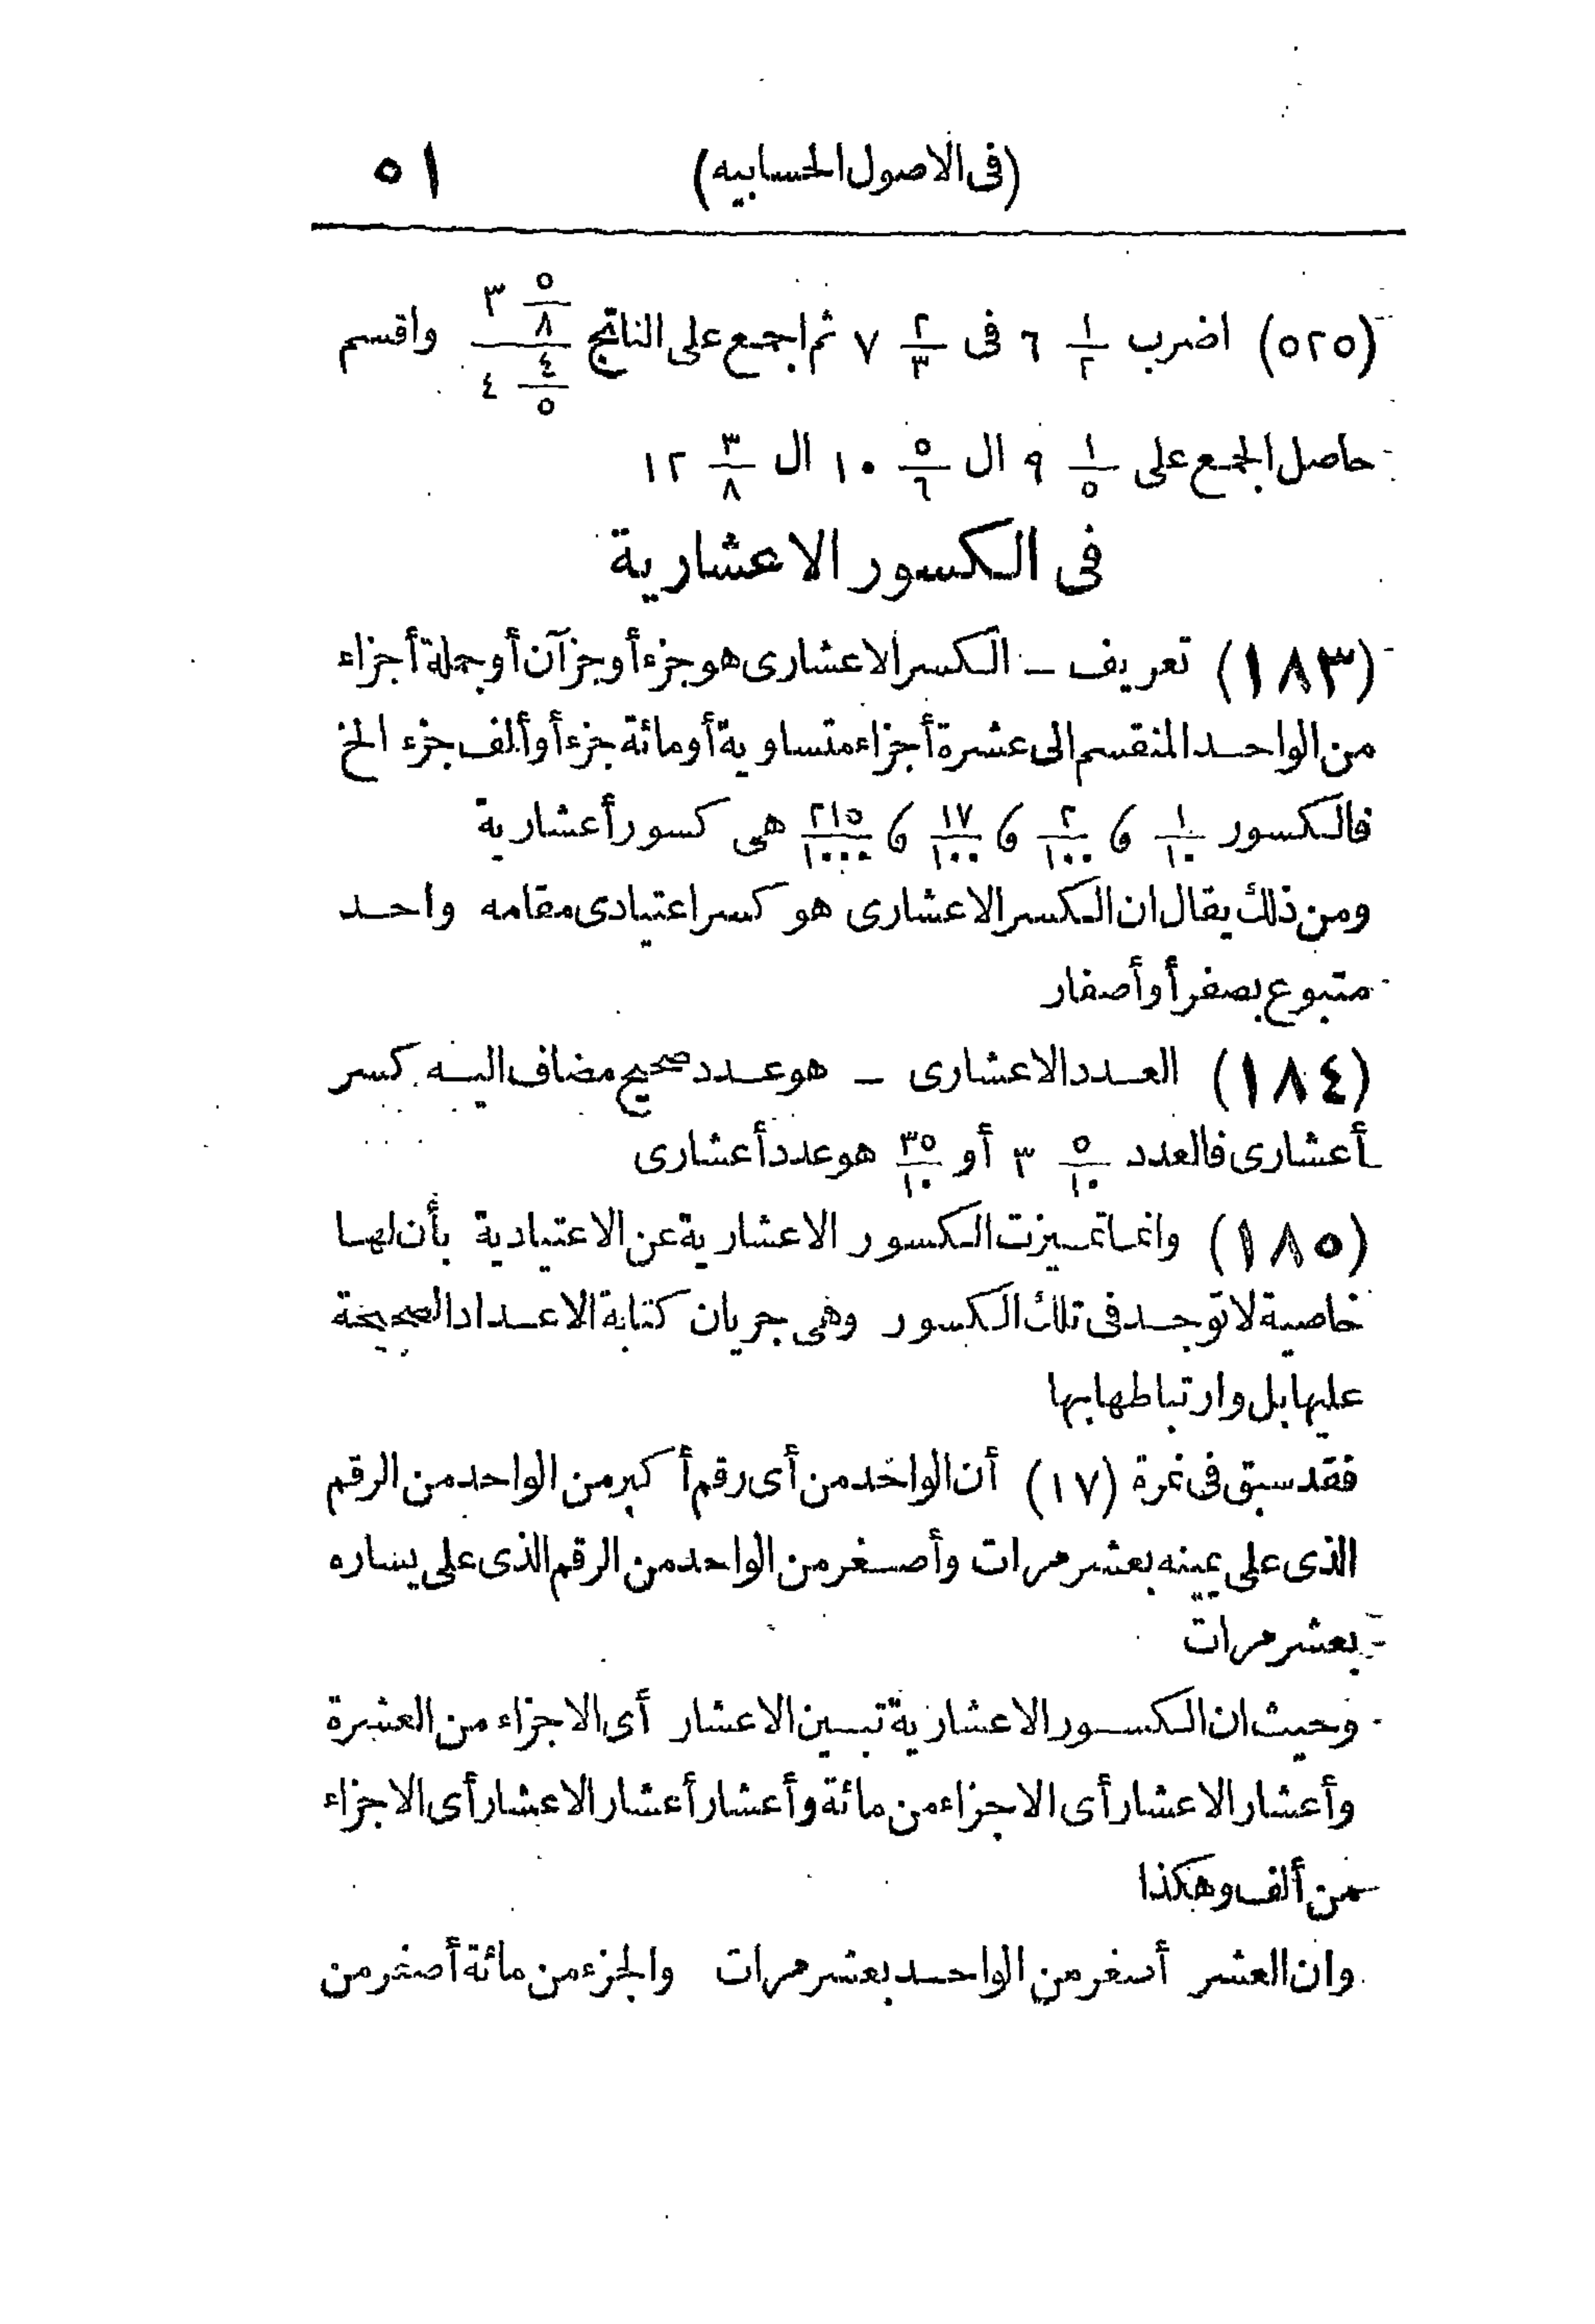 (فى الاصول الحسابيه) ٥١
(٥٢٥) اضرب ١/٢ ٦ فى ٢/٣ ٧ ثم اجمع على الناتج (٣ ٥/٨)/(٤ ٤/٥) واقسم
حاصل الجمع على ١/٥ ٩ ال ٥/٦ ١٠ ال ٣/٨ ١٢
فى الكسور الاعشارية
(١٨٣) تعريف ــ الكسر الاعشارى هو جزء أو جزآن أو جملة أجزاء
من الواحد المنقسم الى عشرة أجزاء متساوية أو مائة جزء أو ألف جزء الخ
فالكسور ١/١٠ و ٢/١٠٠ و ١٧/١٠٠ و ٢١٥/١٠٠٠ هى كسور أعشارية
ومن ذلك يقال ان الكسر الاعشارى هو كسر اعتيادى مقامه واحد
متبوع بصفر أو أصفار
(١٨٤) العدد الاعشارى ــ هو عدد صحيح مضاف اليه كسر
أعشارى فالعدد ٥/١٠ ٣ أو ٣٥/١٠ هو عدد أعشارى
(١٨٥) وانما تميزت الكسور الاعشارية عن الاعتيادية بأن لها
خاصية لا توجد فى تلك الكسور وهى جريان كتابة الاعداد الصحيحة
عليها بل وارتباطها بها
فقد سبق فى نمرة (١٧) أن الواحد من أى رقم أكبر من الواحد من الرقم
الذى على يمينه بعشر مرات وأصغر من الواحد من الرقم الذى على يساره
بعشر مرات
وحيث ان الكسور الاعشارية تبين الاعشار أى الاجزاء من العشرة
وأعشار الاعشار أى الاجزاء من مائة وأعشار أعشار الاعشار أى الاجزاء
من ألف وهكذا
وان العشر أصغر من الواحد بعشر مرات والجزء من مائة أصغر من